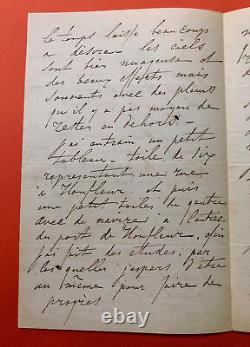 le temps laisse beaucoup
a désirer les ciels
sont bien nuageuse et
des beaux effets mais
souvents avec des pluies
qu'il y a pas moyen de
rester en dehors.
J'ai entrain un petit
tableau – toile de dix
representant une rue
a Honfleur, et puis
une petit toiles de quatre
avec de navire, a l'entré
du port de Honfleur,
j'ai fait des études, par
les quelles j'espers d'étre
au même pour faire de
progres
© 123rf.com